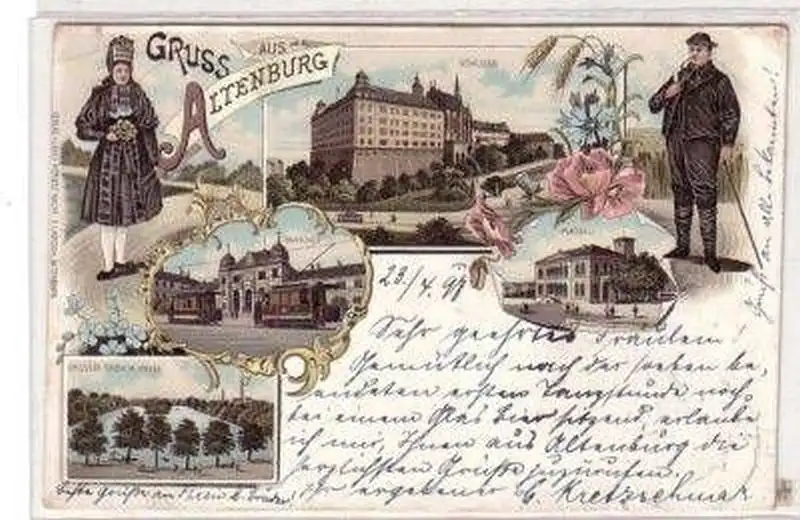 GRUSS
AUS
ALTENBURG!
SCHLOSS
BAHNHOF
GROSSER TEICH M. INSEL
23/4. 97
Sehr geehrtes Fräulein!
Gemütlich nach der soeben be-
endeten ersten Tanzstunde noch
bei einem Glas Bier sitzend, erlaube
ich mir, Ihnen aus Altenburg die
herzlichsten Grüße zuzurufen.
Ihr ergebener G. Kretzschmar
Beste Grüße an Ihren Bruder!
Gruß an alle Bekannten!